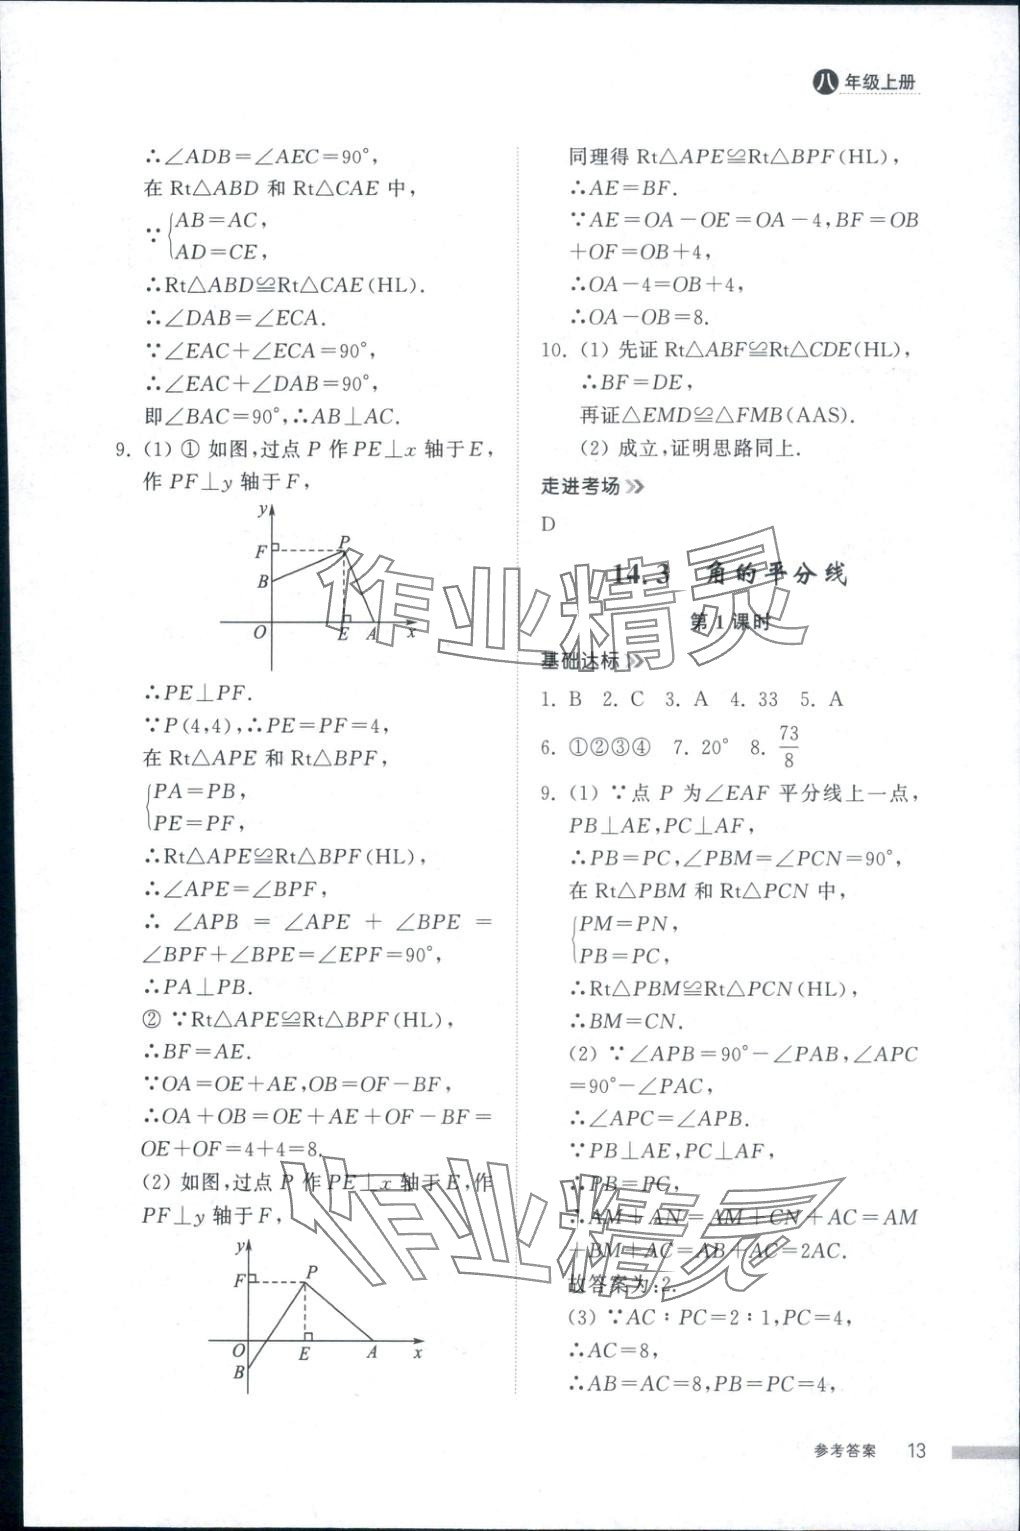 八年级上册
∴∠ADB=∠AEC=90°,
在 Rt△ABD 和 Rt△CAE 中,
∵{AB=AC,
AD=CE,
∴Rt△ABD≌Rt△CAE(HL).
∴∠DAB=∠ECA.
∵∠EAC+∠ECA=90°,
∴∠EAC+∠DAB=90°,
即∠BAC=90°,∴AB⊥AC.
9. (1) ① 如图,过点 P 作 PE⊥x 轴于 E,
作 PF⊥y 轴于 F,
y
F
P
B
O
E
A
x
∴PE⊥PF.
∵P(4,4),∴PE=PF=4,
在 Rt△APE 和 Rt△BPF,
{PA=PB,
PE=PF,
∴Rt△APE≌Rt△BPF(HL),
∴∠APE=∠BPF,
∴ ∠APB = ∠APE + ∠BPE =
∠BPF+∠BPE=∠EPF=90°,
∴PA⊥PB.
② ∵Rt△APE≌Rt△BPF(HL),
∴BF=AE.
∵OA=OE+AE,OB=OF-BF,
∴OA+OB=OE+AE+OF-BF=
OE+OF=4+4=8.
(2) 如图,过点 P 作 PE⊥x 轴于 E,作
PF⊥y 轴于 F,
y
F
P
O
E
A
x
B
同理得 Rt△APE≌Rt△BPF(HL),
∴AE=BF.
∵AE=OA-OE=OA-4,BF=OB
+OF=OB+4,
∴OA-4=OB+4,
∴OA-OB=8.
10. (1) 先证 Rt△ABF≌Rt△CDE(HL),
∴BF=DE,
再证△EMD≌△FMB(AAS).
(2) 成立,证明思路同上.
走进考场
D
14.3 角的平分线
第1课时
基础达标
1. B 2. C 3. A 4. 33 5. A
6. ①②③④ 7. 20° 8. 73/8
9. (1) ∵点 P 为∠EAF 平分线上一点,
PB⊥AE,PC⊥AF,
∴PB=PC,∠PBM=∠PCN=90°,
在 Rt△PBM 和 Rt△PCN 中,
{PM=PN,
PB=PC,
∴Rt△PBM≌Rt△PCN(HL),
∴BM=CN.
(2) ∵∠APB=90°-∠PAB,∠APC
=90°-∠PAC,
∴∠APC=∠APB.
∵PB⊥AE,PC⊥AF,
∴PB=PC,
∴AM+AN=AM+CN+AC=AM
+BM+AC=AB+AC=2AC.
故答案为:2.
(3) ∵AC∶PC=2∶1,PC=4,
∴AC=8,
∴AB=AC=8,PB=PC=4,
作业精灵
作业精灵
参考答案 13